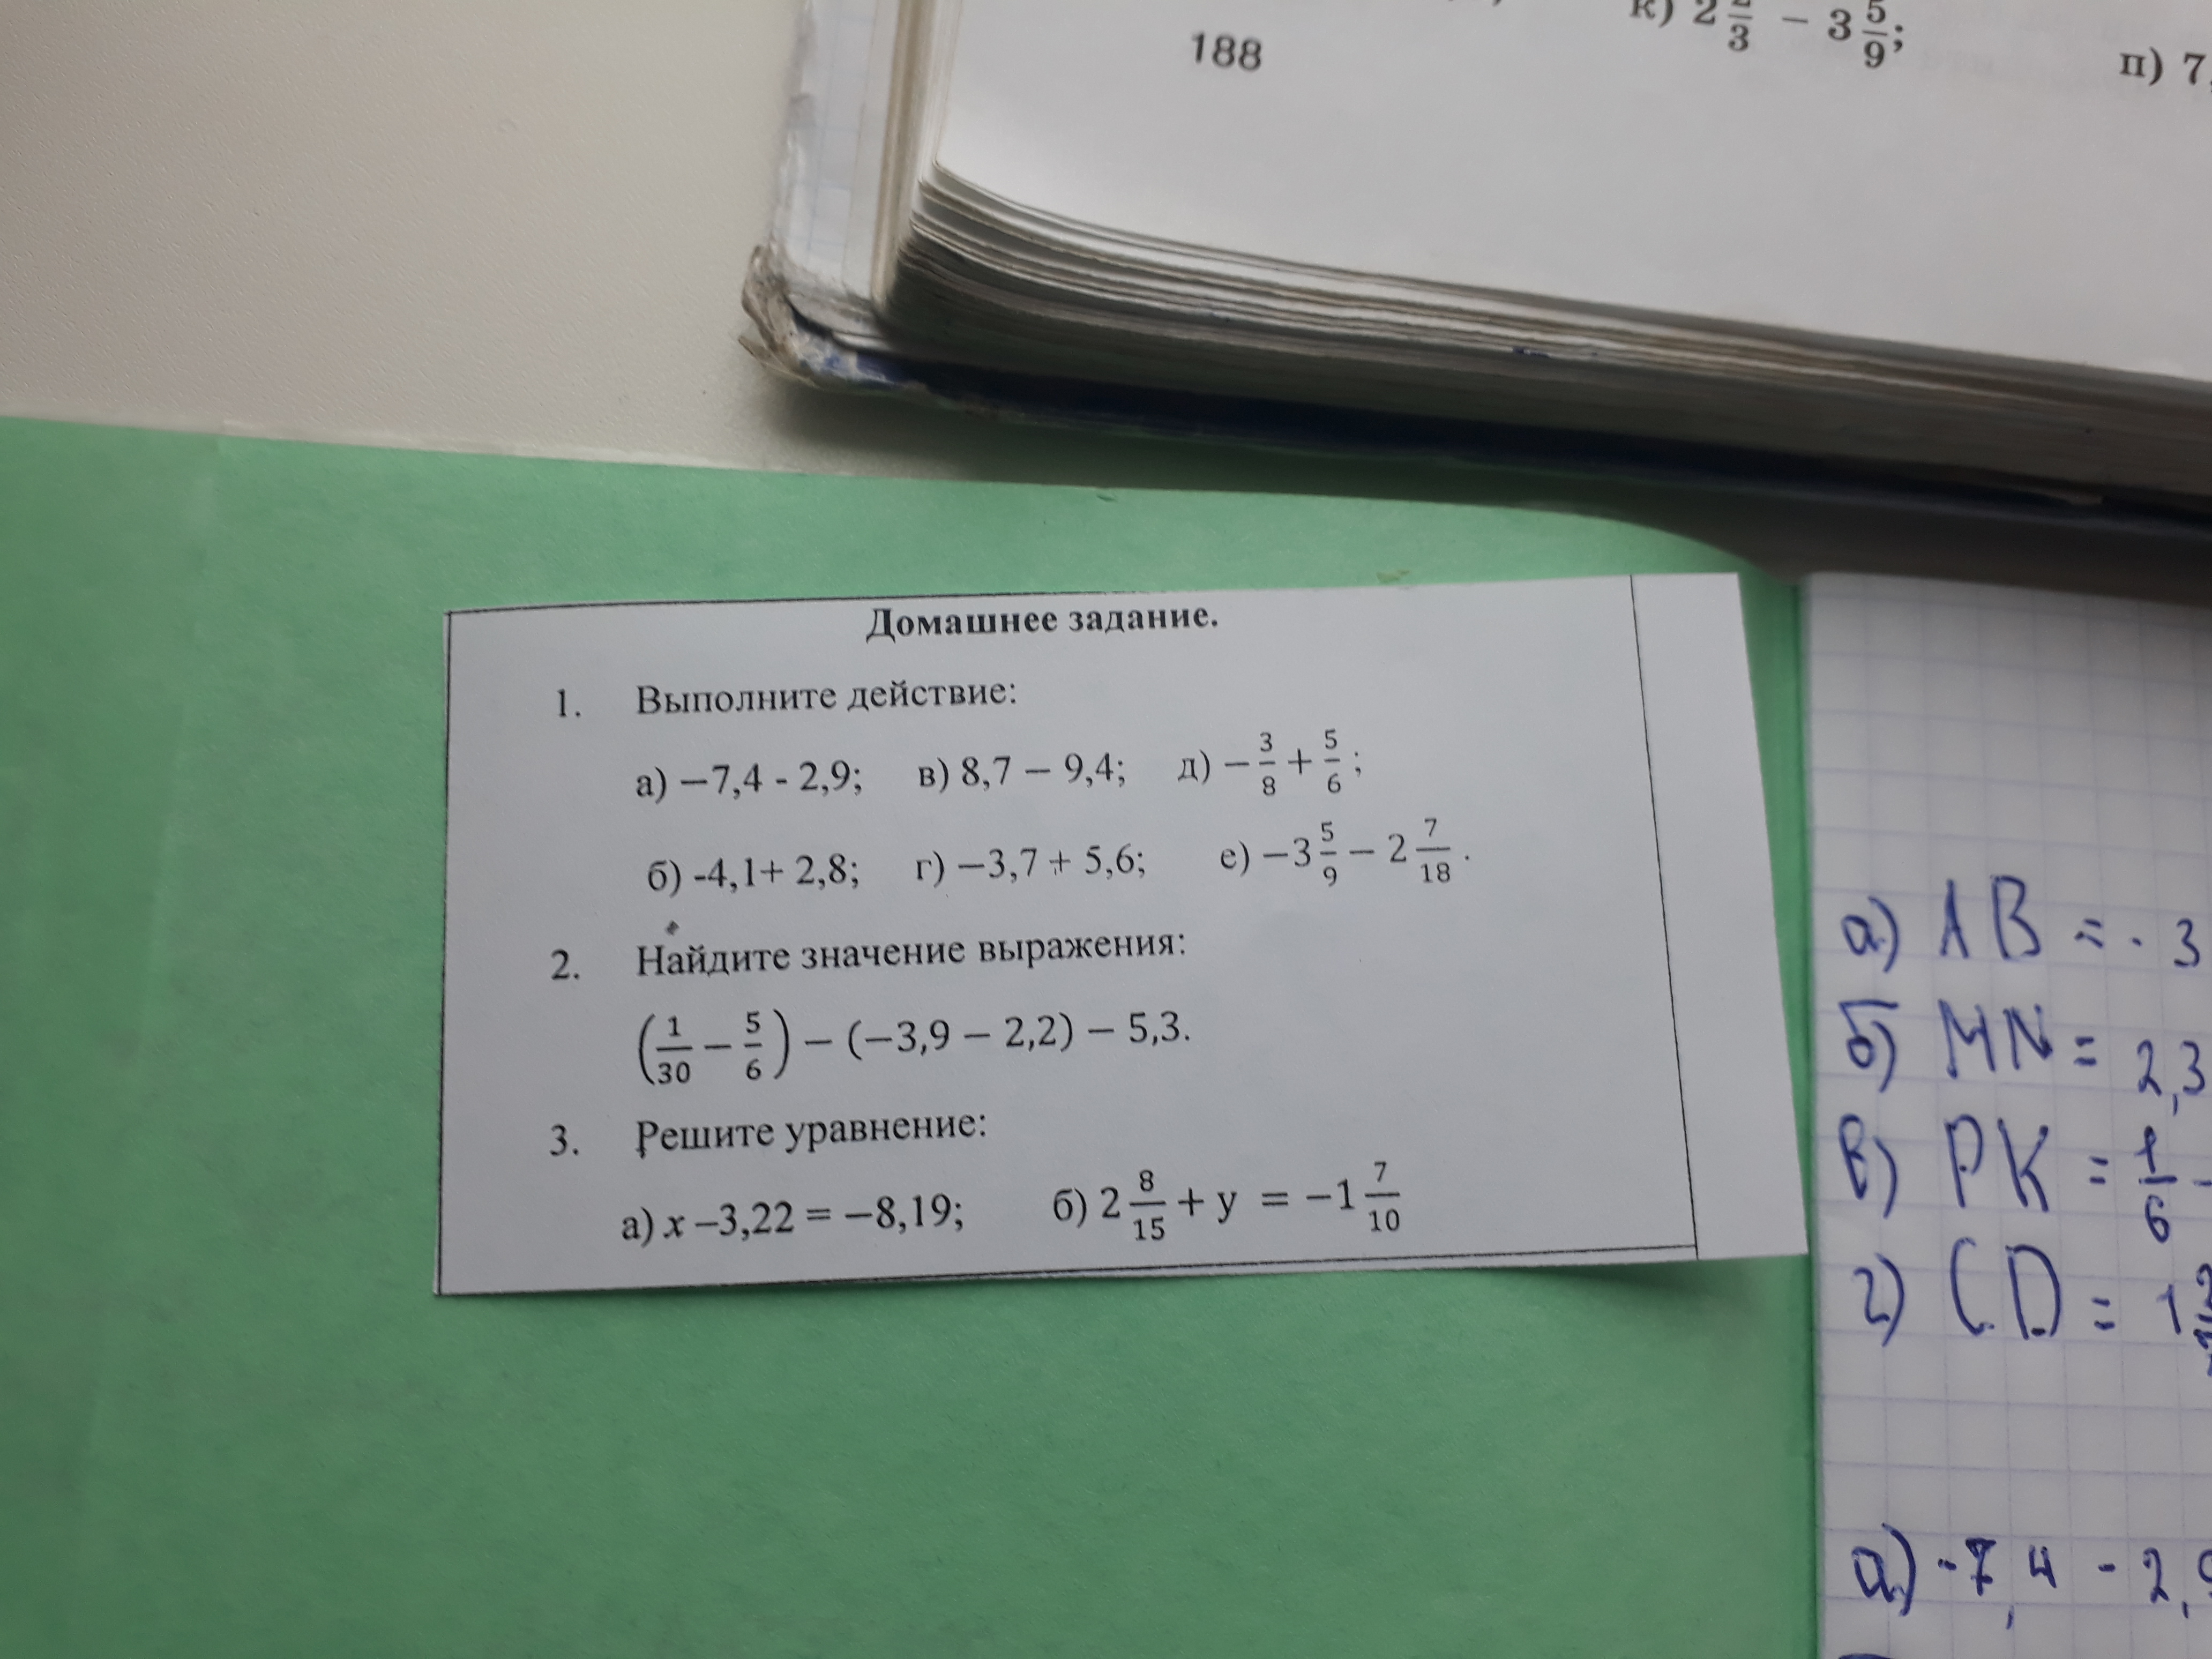 к) 2 2/3 − 3 5/9;
188
п) 7,
Домашнее задание.
1. Выполните действие:
а) −7,4 - 2,9; в) 8,7 − 9,4; д) −3/8 + 5/6;
б) -4,1+ 2,8; г) −3,7 + 5,6; е) −3 5/9 − 2 7/18.
2. Найдите значение выражения:
(1/30 − 5/6) − (−3,9 − 2,2) − 5,3.
3. Решите уравнение:
а) x −3,22 = −8,19; б) 2 8/15 + y = −1 7/10
а) AB = - 3
б) MN = 2,3
в) PK = 1/6 -
г) CD = 1
а) -7,4 - 2,9